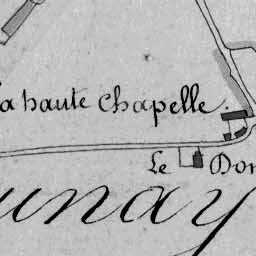 la haute Chapelle.
Le Don
unay